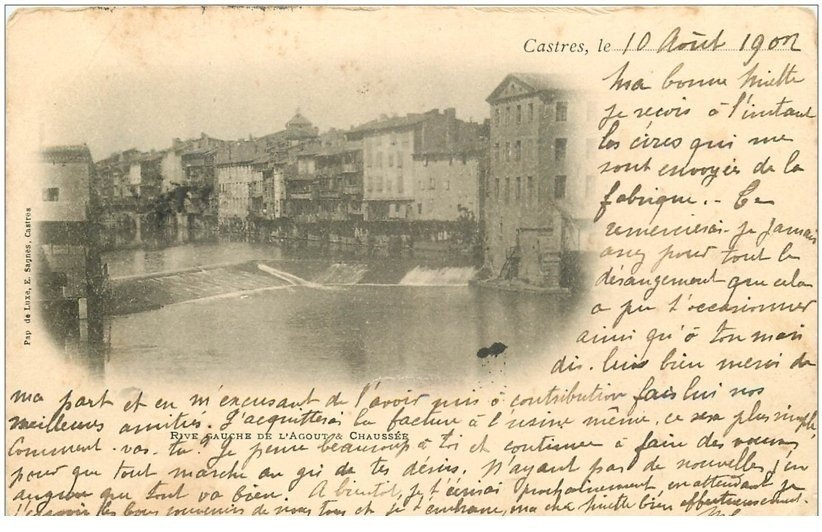 Castres, le 10 Août 1902
Ma bonne Miette
je reçois à l'instant
les cires qui me
sont envoyées de la
fabrique. - Te
remercierai-je jamais
assez pour tout le
dérangement que cela
a pu t'occasionner
ainsi qu'à ton mari
dis-lui bien merci de
ma part et en m'excusant de l'avoir mis à contribution fais lui nos
meilleures amitiés. J'acquitterai la facture à l'usine même, ce sera plus simple.
RIVE GAUCHE DE L'AGOUT & CHAUSSÉE
Comment vas-tu? Je pense beaucoup à toi et continue à faire des vœux
pour que tout marche au gré de tes désirs. N'ayant pas de nouvelles j'en
augure que tout va bien. A bientôt, je t'écrirai prochainement en attendant je
les bons souvenirs de nous tous et je t'embrasse, ma chère Miette bien affectueusement.
Pap. de Luxe, E. Sagnes, Castres